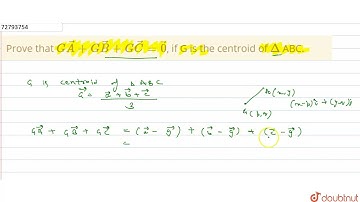 72793754
Prove that GA⃗ + GB⃗ + GC⃗ = 0⃗, if G is the centroid of Δ ABC.
G is centroid of Δ ABC
g⃗ = a⃗ + b⃗ + c⃗ / 3
GA⃗ + GB⃗ + GC⃗ = (a⃗ - g⃗) + (b⃗ - g⃗) + (c⃗ - g⃗)
=
doubtnut